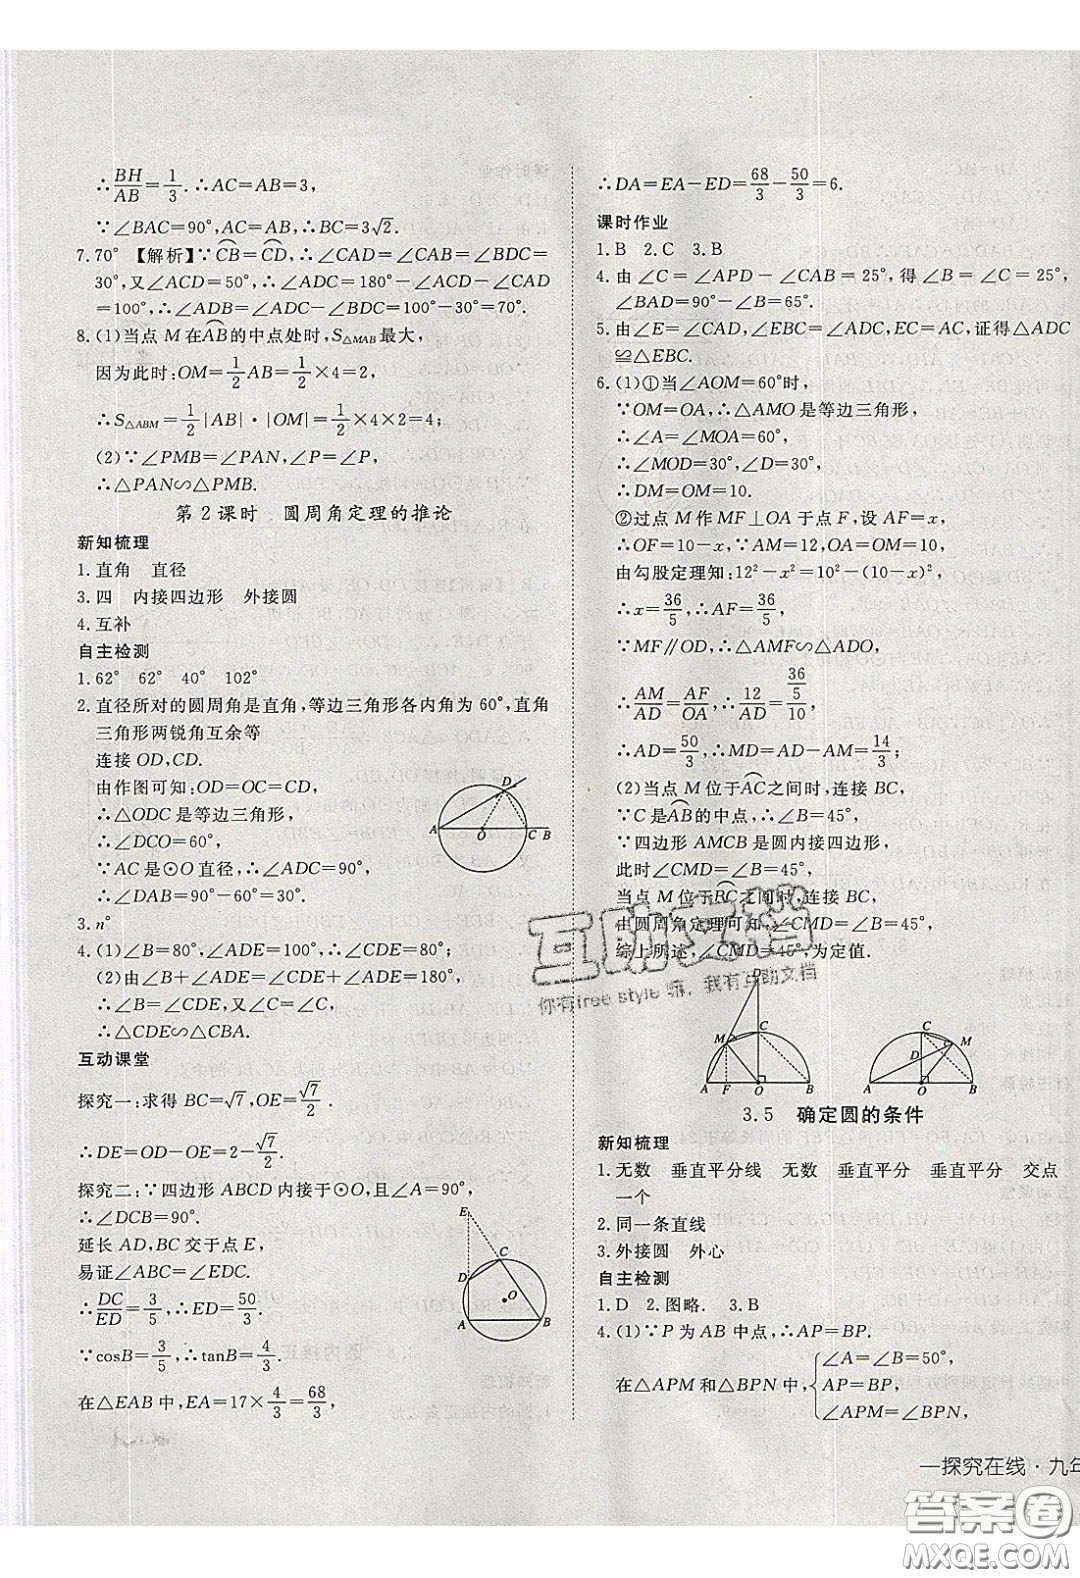 ∴BH/AB=1/3. ∴AC=AB=3,
∵∠BAC=90°,AC=AB,∴BC=3√2.
7.70° 【解析】∵⌒CB=⌒CD,∴∠CAD=∠CAB=∠BDC=
30°,又∠ACD=180°-∠ADC-∠ACD-∠CAD
=100°,∴∠ADB=∠ADC-∠BDC=100°-30=70°.
8.(1)当点 M 在⌒AB的中点处时,S△MAB最大,
因为此时:OM=1/2 AB=1/2×4=2,
∴S△ABM=1/2|AB|·|OM|=1/2×4×2=4;
(2)∵∠PMB=∠PAN,∠P=∠P,
∴△PAN∽△PMB.
第2课时 圆周角定理的推论
新知梳理
1.直角 直径
3.四 内接四边形 外接圆
4.互补
自主检测
1.62° 62° 40° 102°
2.直径所对的圆周角是直角,等边三角形各内角为60°,直角
三角形两锐角互余等
连接OD,CD.
由作图可知:OD=OC=DC,
∴△ODC是等边三角形,
∴∠DCO=60°,
∵AC是⊙O直径,∴∠ADC=90°,
∴∠DAB=90°-60°=30°.
D
A
O
C
B
3.n°
4.(1)∠B=80°,∠ADE=100°,∴∠CDE=80°;
(2)由∠B+∠ADE=∠CDE+∠ADE=180°,
∴∠B=∠CDE,又∠C=∠C,
∴△CDE∽△CBA.
互动课堂
探究一:求得 BC=√7,OE=√7/2.
∴DE=OD-OE=2-√7/2.
探究二:∵四边形ABCD内接于⊙O,且∠A=90°,
∴∠DCB=90°.
延长AD,BC交于点E,
易证∠ABC=∠EDC.
∴DC/ED=3/5,∴ED=50/3.
∵cosB=3/5,∴tanB=4/3.
在△EAB中,EA=17×4/3=68/3,
E
C
D
O
A
B
∴DA=EA-ED=68/3-50/3=6.
课时作业
1.B 2.C 3.B
4.由∠C=∠APD-∠CAB=25°,得∠B=∠C=25°,
∠BAD=90°-∠B=65°.
5.由∠E=∠CAD,∠EBC=∠ADC,EC=AC,证得△ADC
≌△EBC.
6.(1)①当∠AOM=60°时,
∵OM=OA,∴△AMO是等边三角形,
∴∠A=∠MOA=60°,
∴∠MOD=30°,∠D=30°,
∴DM=OM=10.
②过点M作MF⊥OA于点F,设AF=x,
∴OF=10-x,∵AM=12,OA=OM=10,
由勾股定理知:12²-x²=10²-(10-x)².
∴x=36/5,∴AF=36/5,
∵MF∥OD,∴△AMF∽△ADO,
∴AM/AD=AF/OA,∴12/AD=(36/5)/10,
∴AD=50/3,∴MD=AD-AM=14/3;
(2)当点M位于⌒AC之间时,连接BC,
∵C是⌒AB的中点,∴∠B=45°,
∵四边形AMCB是圆内接四边形,
此时∠CMD=∠B=45°,
当点M位于⌒BC之间时,连接BC,
由圆周角定理可知,∠CMD=∠B=45°,
综上所述,∠CMD=45°为定值.
互助文档
你有free style嘛,我有互助文档
D
M
C
A
F
O
B
C
D
M
A
O
B
3.5 确定圆的条件
新知梳理
1.无数 垂直平分线 无数 垂直平分 垂直平分 交点
一个
2.同一条直线
3.外接圆 外心
自主检测
1.D 2.图略. 3.B
4.(1)∵P为AB中点,∴AP=BP.
在△APM和△BPN中,{∠A=∠B=50°,
AP=BP,
∠APM=∠BPN,
一探究在线·九年
答案卷
MXQE.COM